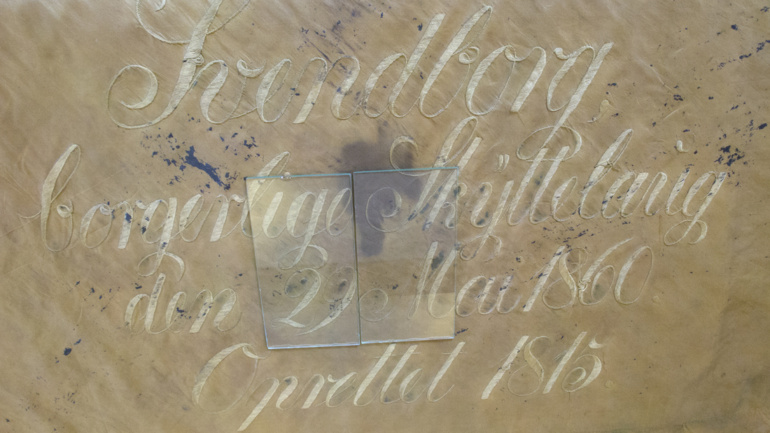 Svendborg
borgerlige Skÿttelaug
den 29 Mai 1860
Oprettet 1815